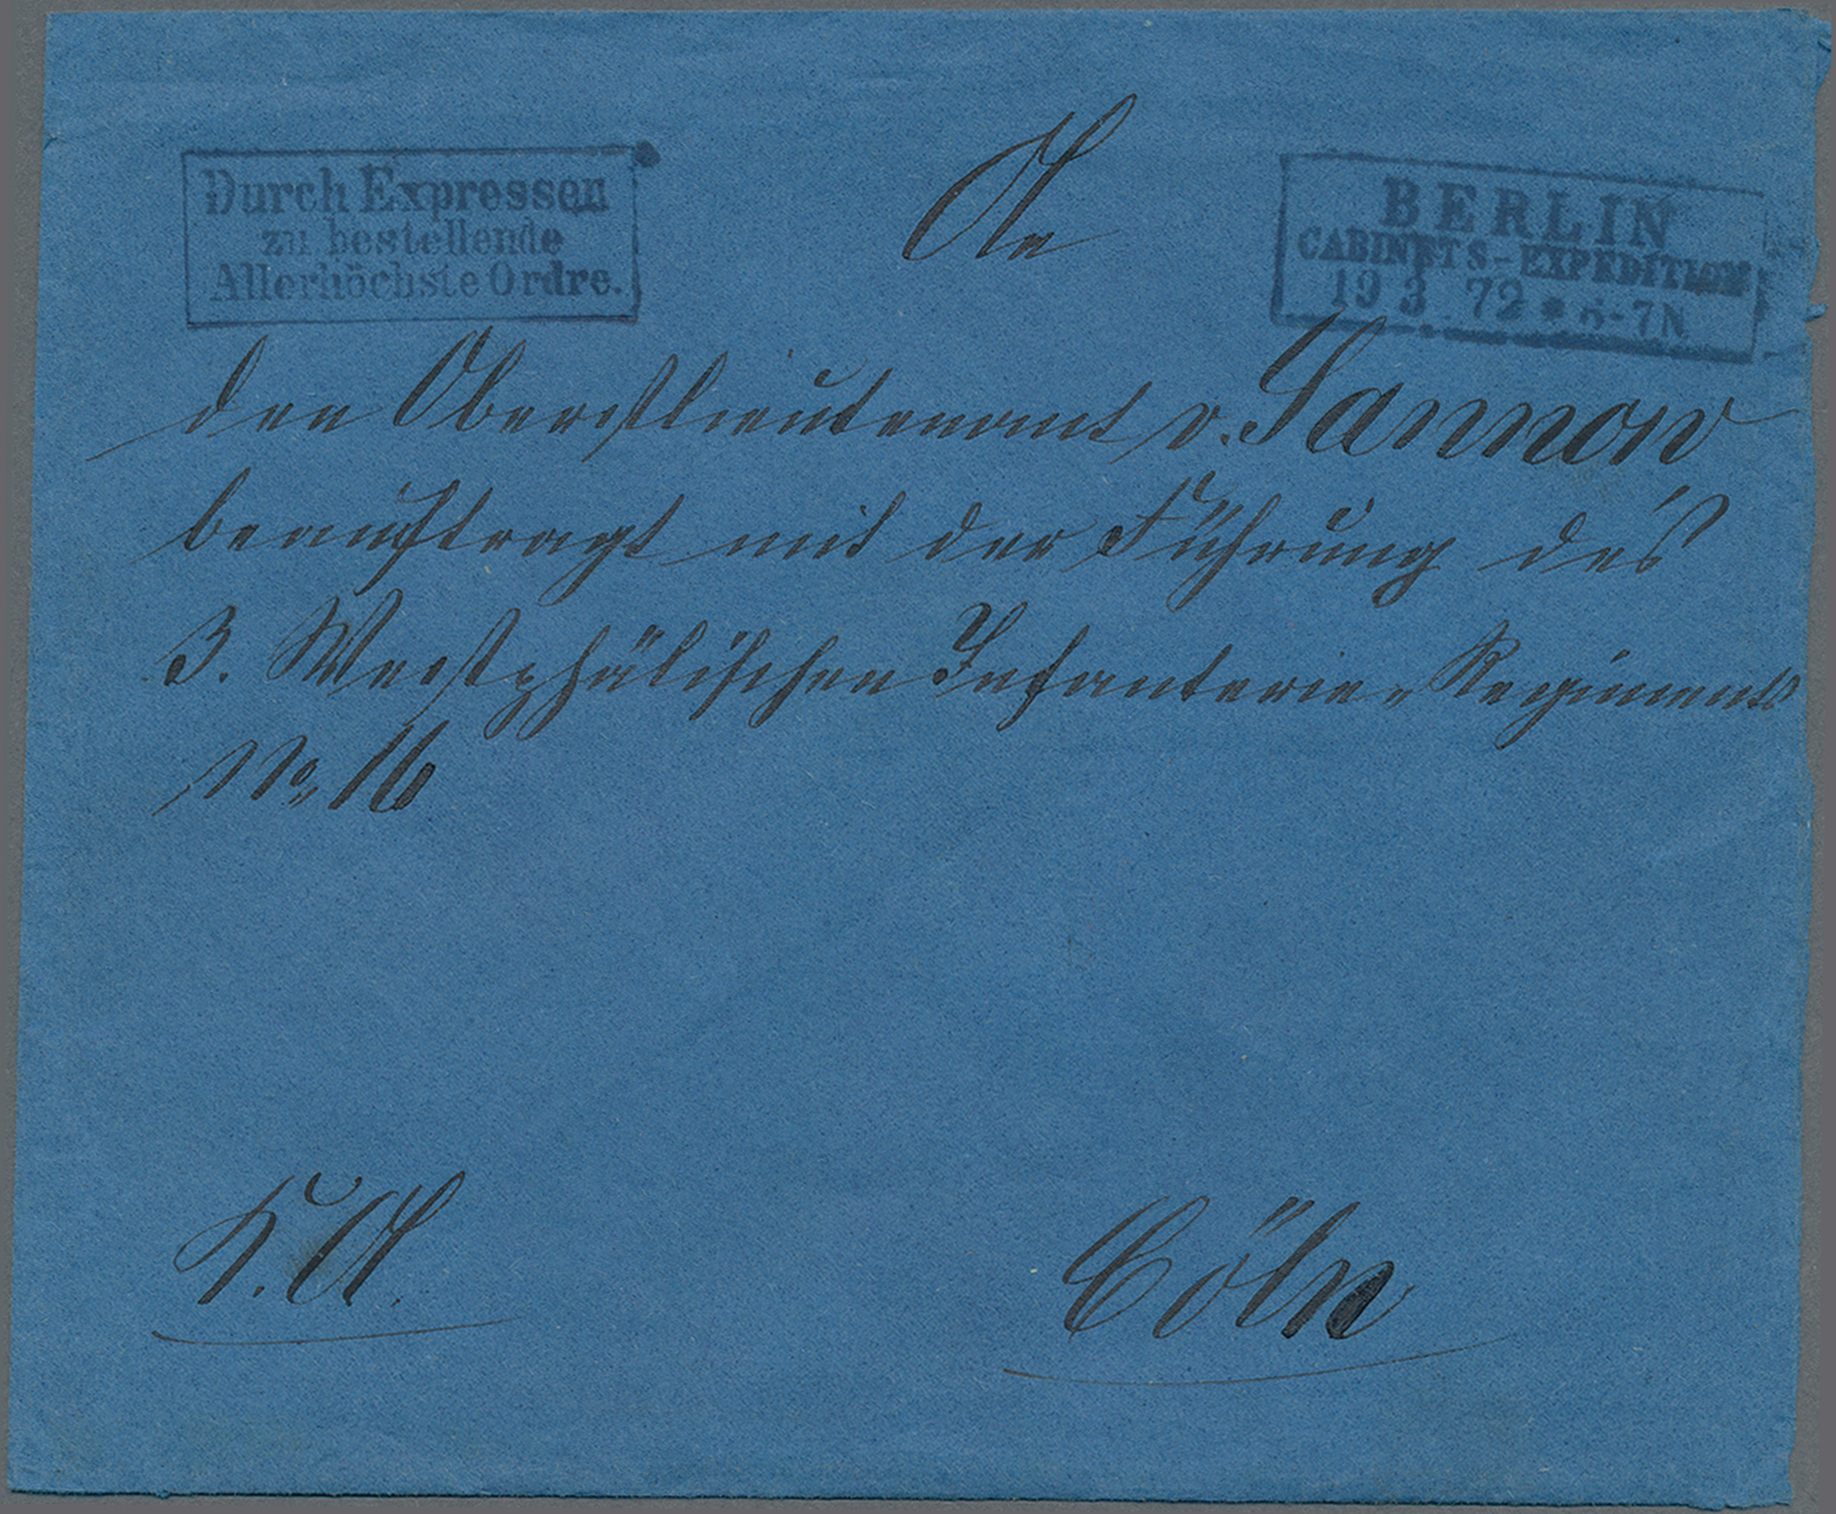 Durch Expressen
zu bestellende
Allerhöchste Ordre.
BERLIN
CABINETS-EXPEDITION
19 3 72 * 6-7N
An
den Oberstlieutenant v. Sannow
beauftragt mit der Führung des
3. Westphälischen Infanterie-Regiments
No. 16
K.A.
Cöln